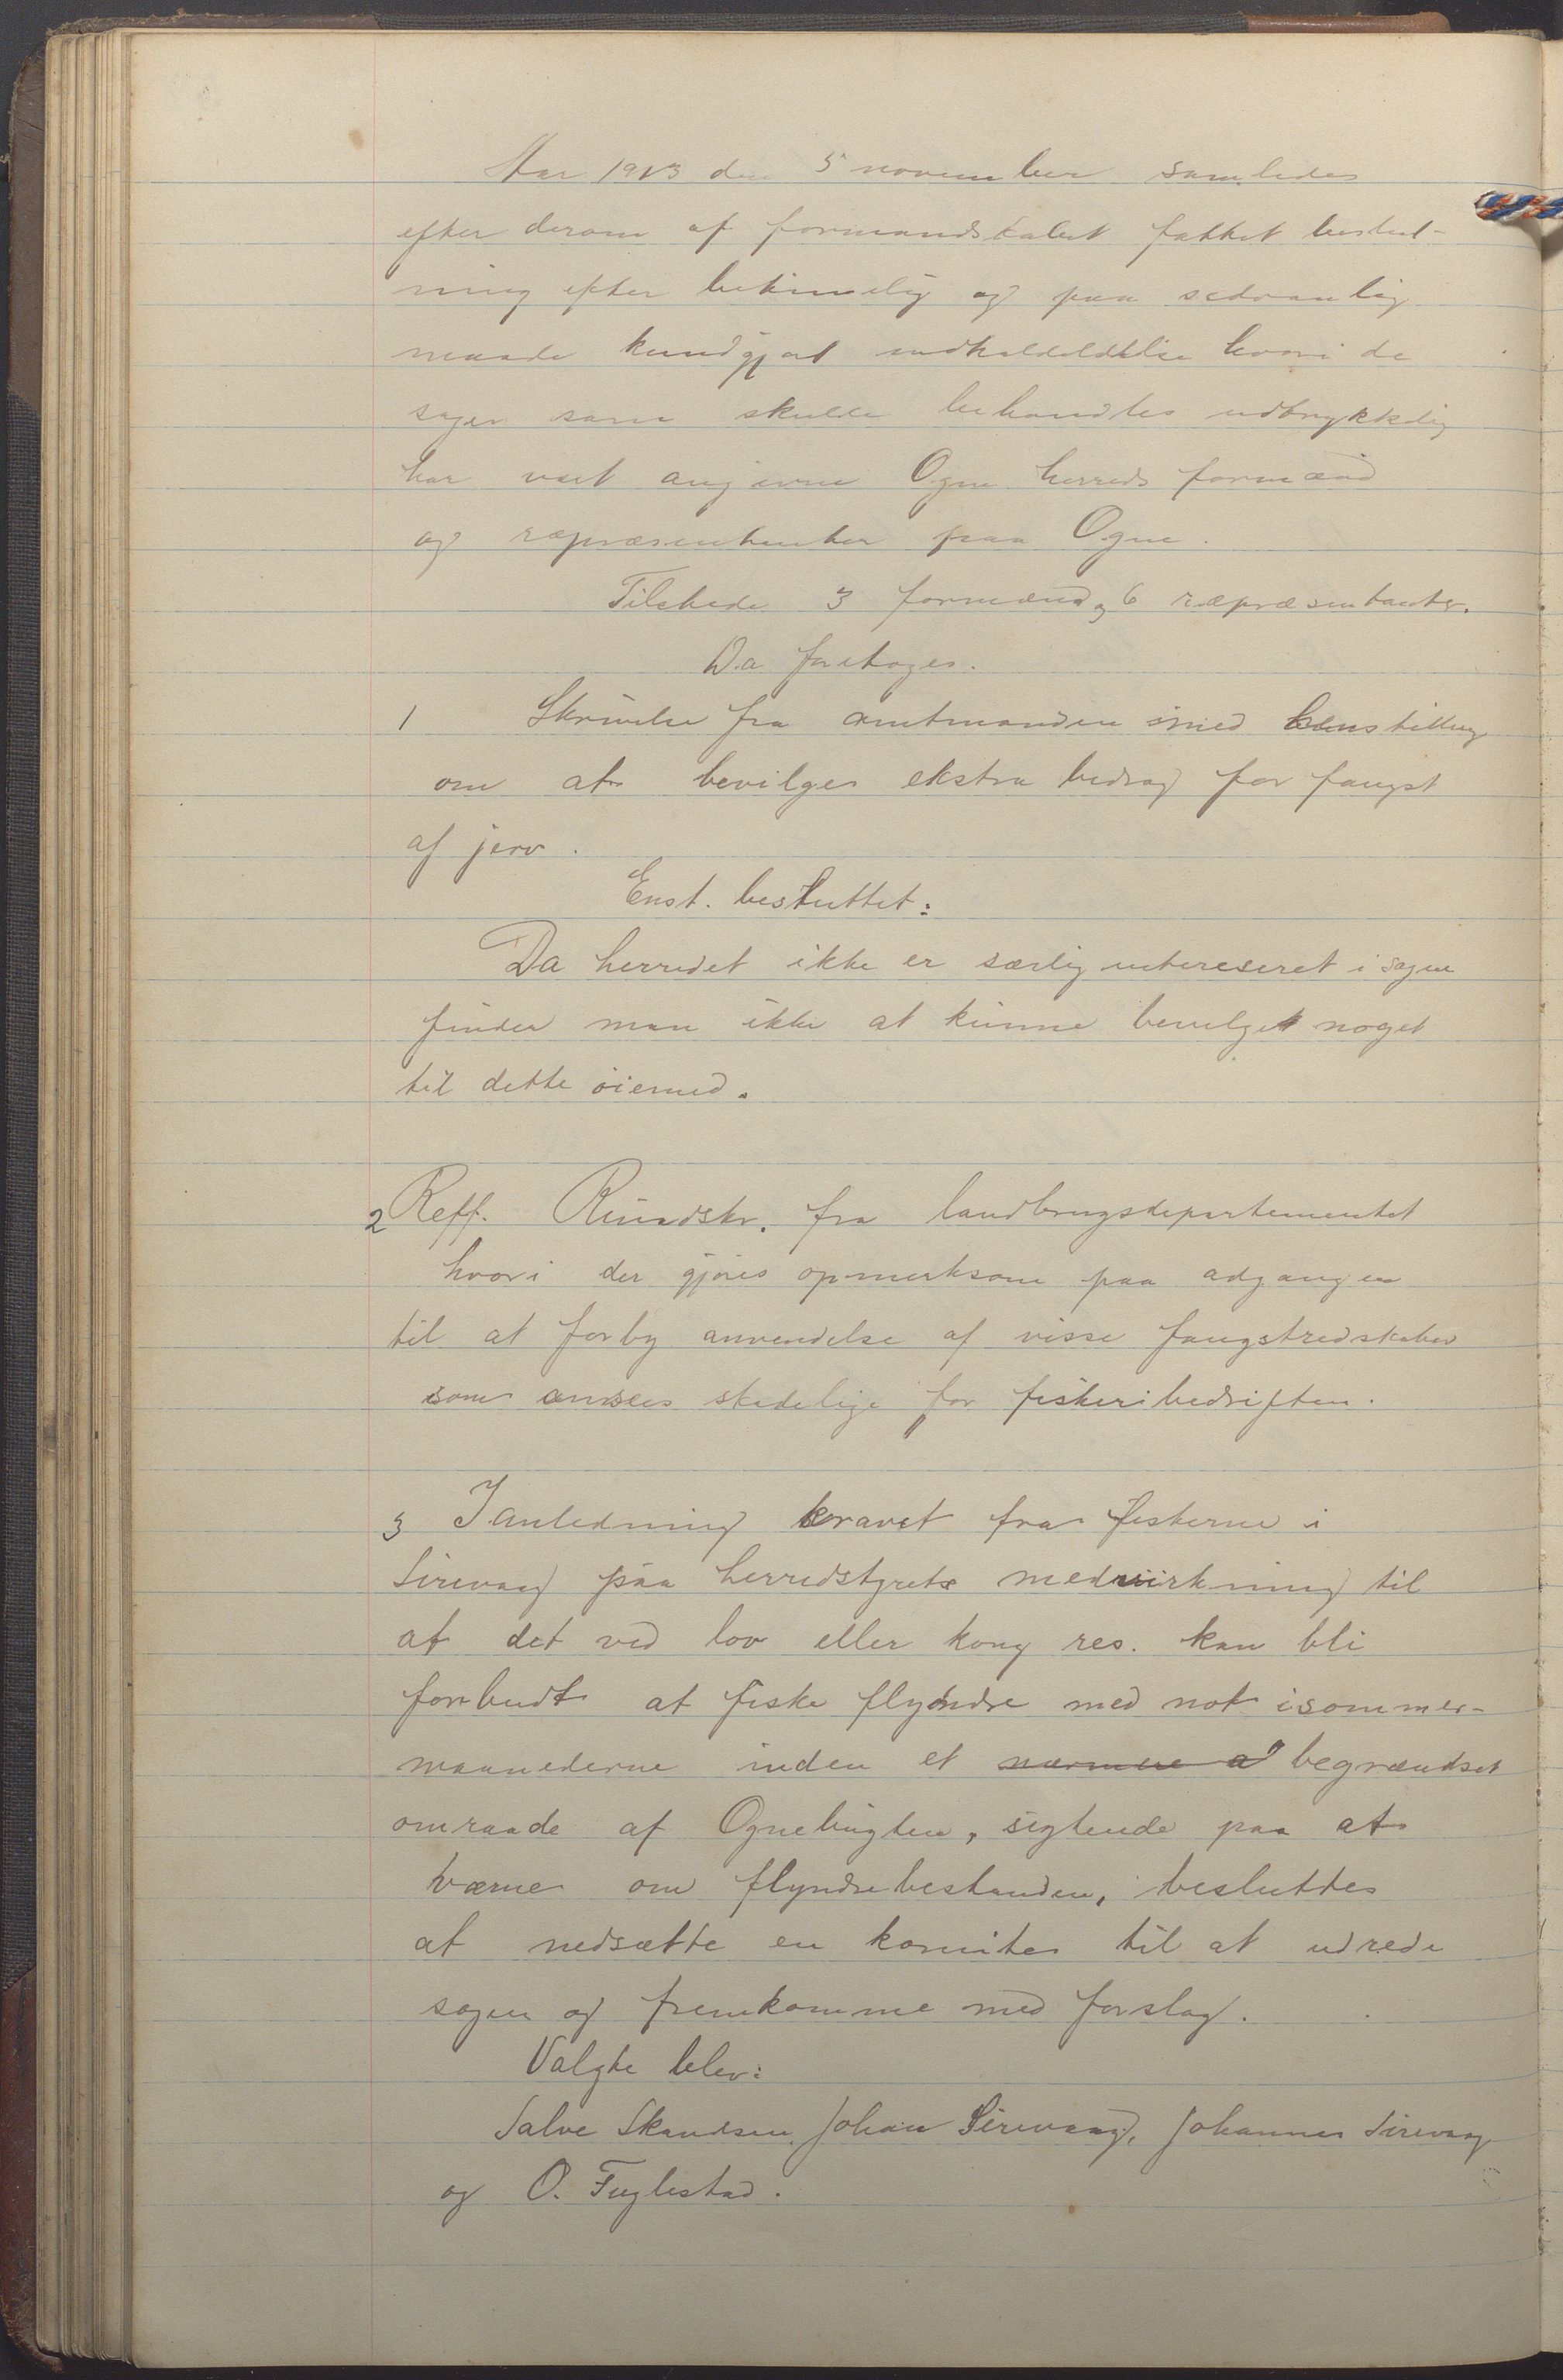 Aar 1913 den 5 november samledes
efter derom af formandskabet fattet beslut-
ning efter betimelig og paa sedvanlig
maade kundgjort indkaldelse hvori de
sager som skulde behandles udtrykkelig
har vært angivne Ogne herreds formænd
og repræsententer paa Ogne.
Tilstede 3 formænd og 6 repræsentanter.
Da foretoges.
1 Skrivelse fra amtmanden med henstilling
om at bevilges ekstra bidrag for fangst
af jerv.
Enst. besluttet:
Da herredet ikke er særlig intereseret i sagen
finder man ikke at kunne bevilget noget
til dette öiemed.
2 Reff. Rundskr. fra landbrugsdepartementet
hvori der gjöres opmerksom paa adgangen
til at forby anvendelse af visse fangstredskaber
som ansees skadelige for fiskeribedriften.
3 I anledning kravet fra fiskerne i
Sirevaag paa herredstyrets medvirkning til
at det ved lov eller kong res. kan bli
forbudt at fiske flyndre med not i sommer-
maanederne inden et nærmere a begrændset
omraade af Ognebugten, sigtende paa at
værne om flyndrebestanden, besluttes
at nedsætte en komite til at udrede
sagen og fremkomme med forslag.
Valgte blev:
Salve Skandsen, Johan Sirevaag, Johannes Sirevaag
og O. Fuglestad.